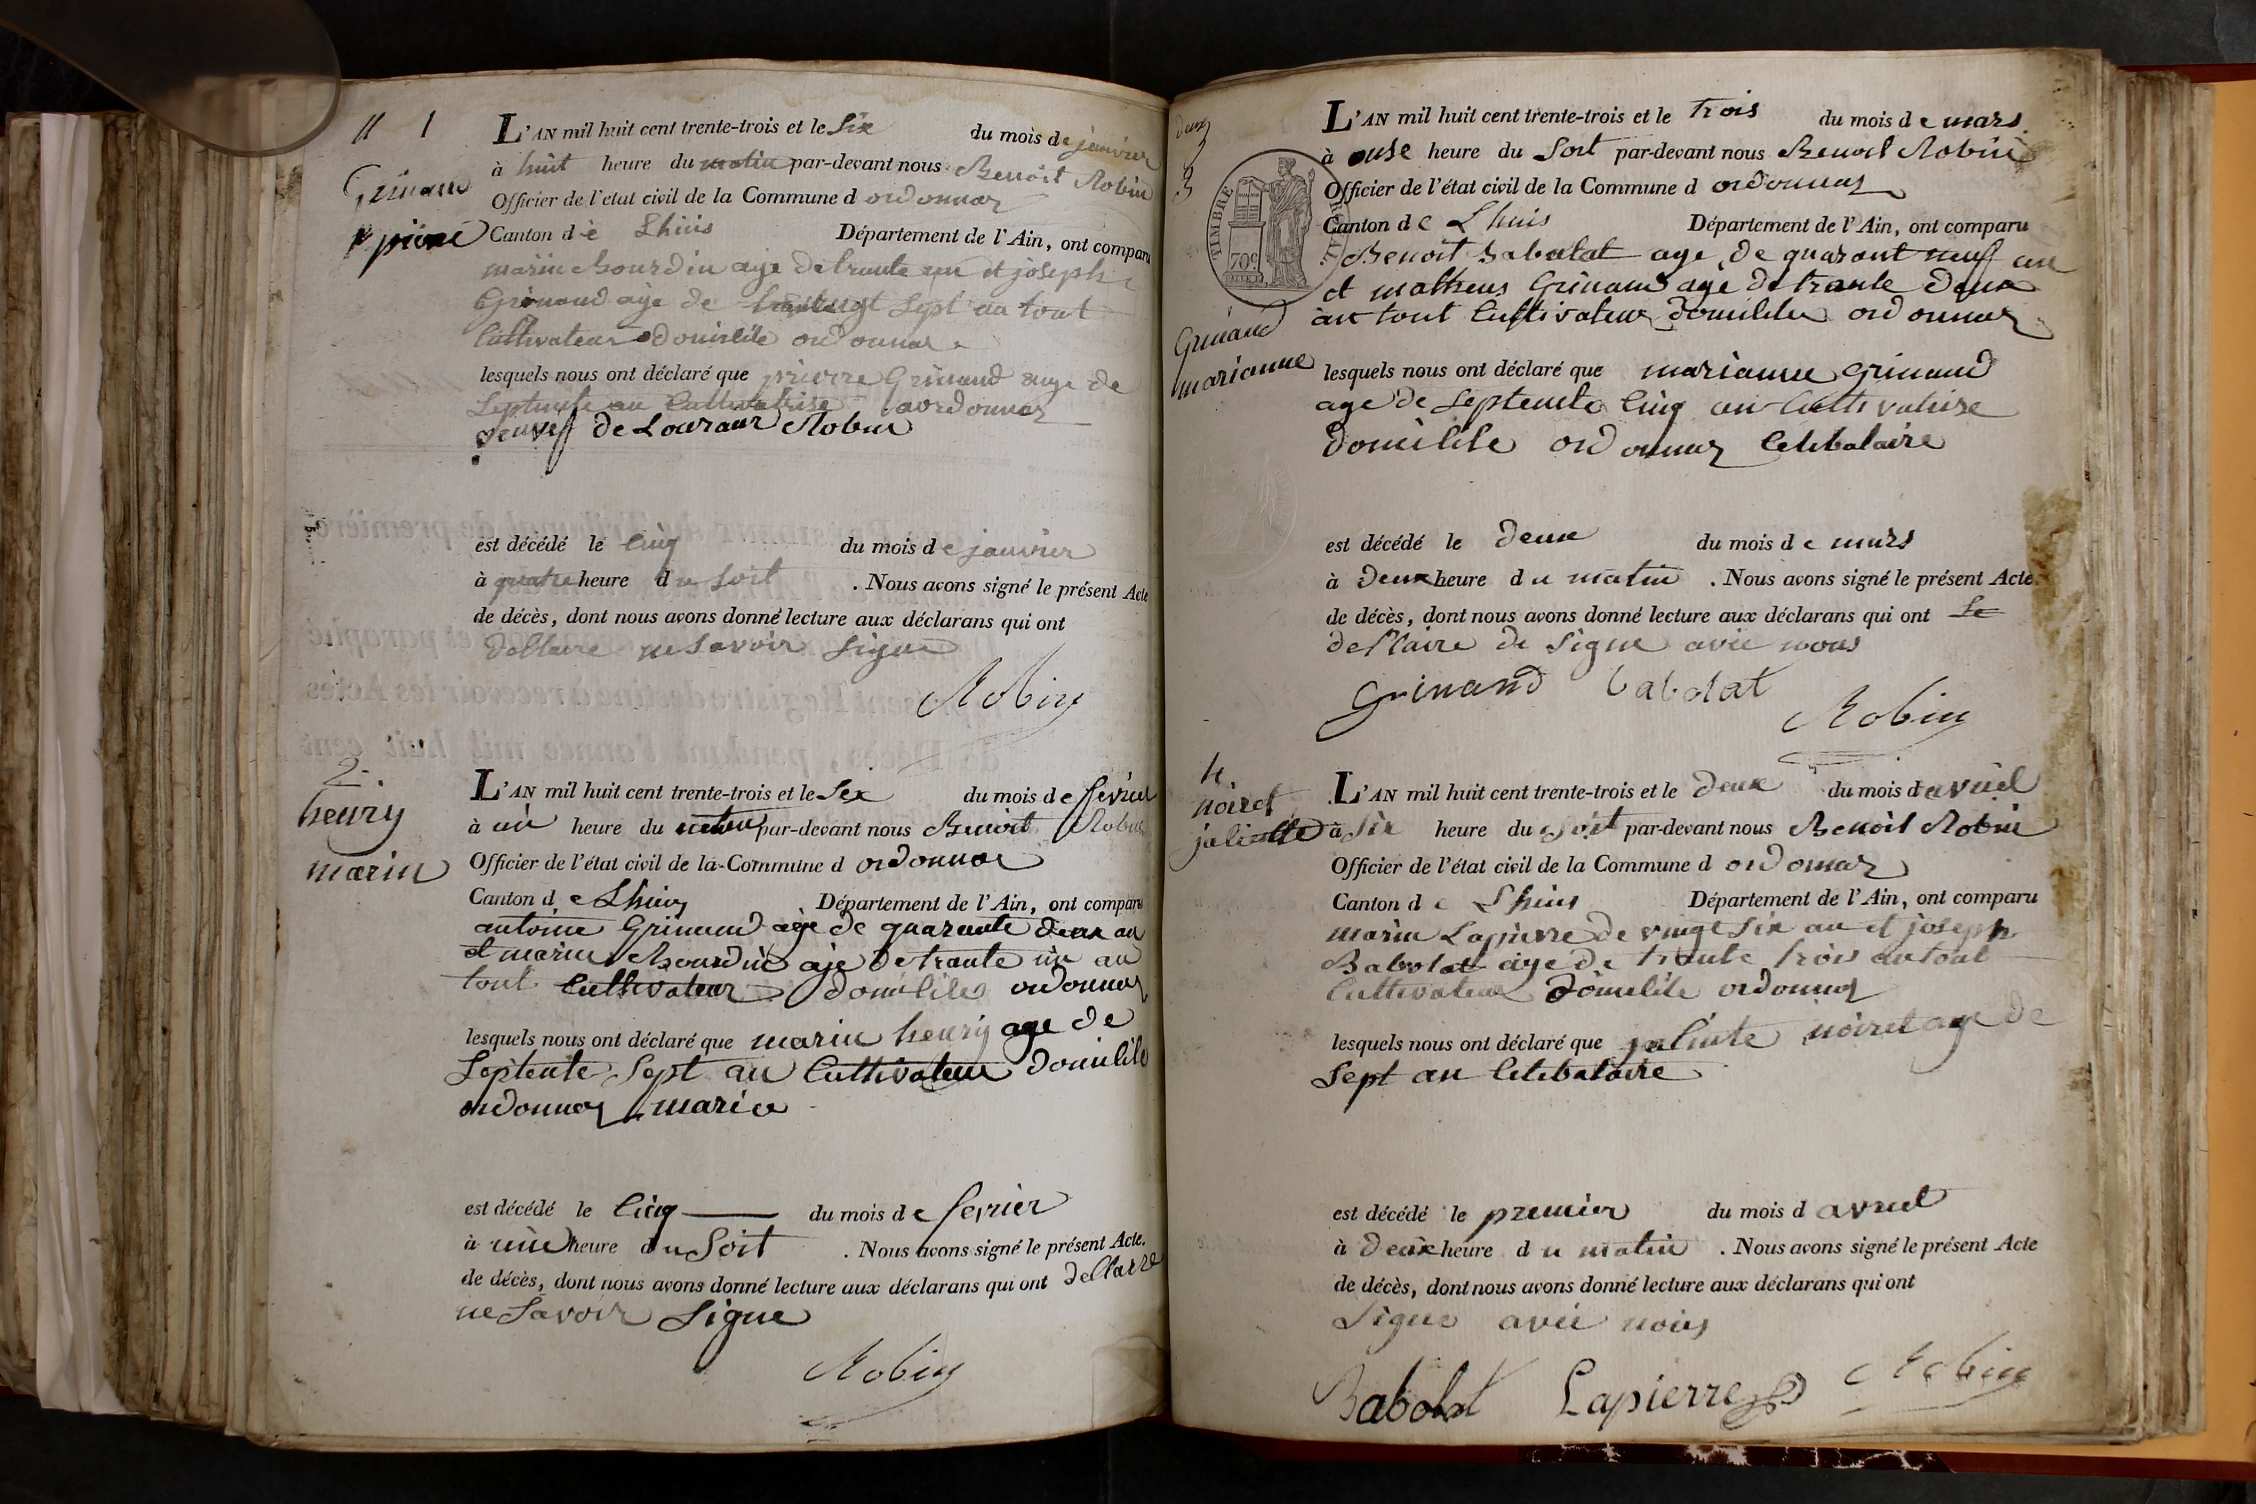 N 1
Grinand
pierré
L'AN mil huit cent trente-trois et le Six du mois de janvier
à huit heure du matin par-devant nous Benoit Robin
Officier de l'état civil de la Commune d ordonnaz
Canton de Lhuis Département de l'Ain, ont comparu
marin Bourdin age de trante un et joseph
Grinand age de vingt sept an tout
Cultivateur domicile ordonnaz
lesquels nous ont déclaré que pierre Grinand age de
Septente an Cultivatrise aordonnaz
veuve de Louraur Robin
est décédé le Cinq du mois de janvier
à quatre heure du Soit . Nous avons signé le présent Acte
de décès, dont nous avons donné lecture aux déclarans qui ont
dellaire ne Savoir Signe
Robin
2.
henry
marin
L'AN mil huit cent trente-trois et le Six du mois de fevrier
à un heure du matin par-devant nous Benoit Robin
Officier de l'état civil de la Commune d ordonnaz
Canton de Lhuis Département de l'Ain, ont comparu
antoine Grinand age de quarante deux an
et marin Bourdin aje de trante un an
tout Cultivateur domicile ordonnaz
lesquels nous ont déclaré que marin henry age de
Septente Sept an Cultivateur domicile
ordonnaz marie
est décédé le Cinq du mois de fevrier
à une heure du Soit . Nous avons signé le présent Acte.
de décès, dont nous avons donné lecture aux déclarans qui ont dellarre
ne Savoir Signe
Robin
deux
3
TIMBRE ROYAL
70c
Grinand
marianne
L'AN mil huit cent trente-trois et le trois du mois de mars
à onse heure du Soit par-devant nous Benoit Robin
Officier de l'état civil de la Commune d ordonnaz
Canton de Lhuis Département de l'Ain, ont comparu
Benoit Babolat age de quarant neuf an
et matheus Grinand age de trante deux
an tout Cultivateur domicile ordonnaz
lesquels nous ont déclaré que marianne Grinand
age de Septente Cinq an Cultivatrise
domicile ordonnaz Celibataire
est décédé le deux du mois de mars
à deux heure du matin . Nous avons signé le présent Acte.
de décès, dont nous avons donné lecture aux déclarans qui ont
dellaire de Signe avec nous
Grinand babolat
Robin
4.
noiret
L'AN mil huit cent trente-trois et le deux du mois d avril
à Six heure du Soit par-devant nous Benoit Robin
Officier de l'état civil de la Commune d ordonnaz
Canton de Lhuis Département de l'Ain, ont comparu
marin Lapierre de vingt Six an et joseph
Babolat age de trante trois an tout
Cultivateur domicile ordonnaz
lesquels nous ont déclaré que noiret age de
Sept an Celibataire
est décédé le premier du mois d avril
à deux heure du matin . Nous avons signé le présent Acte
de décès, dont nous avons donné lecture aux déclarans qui ont
Signe avec nous
Babolat Lapierre Robin